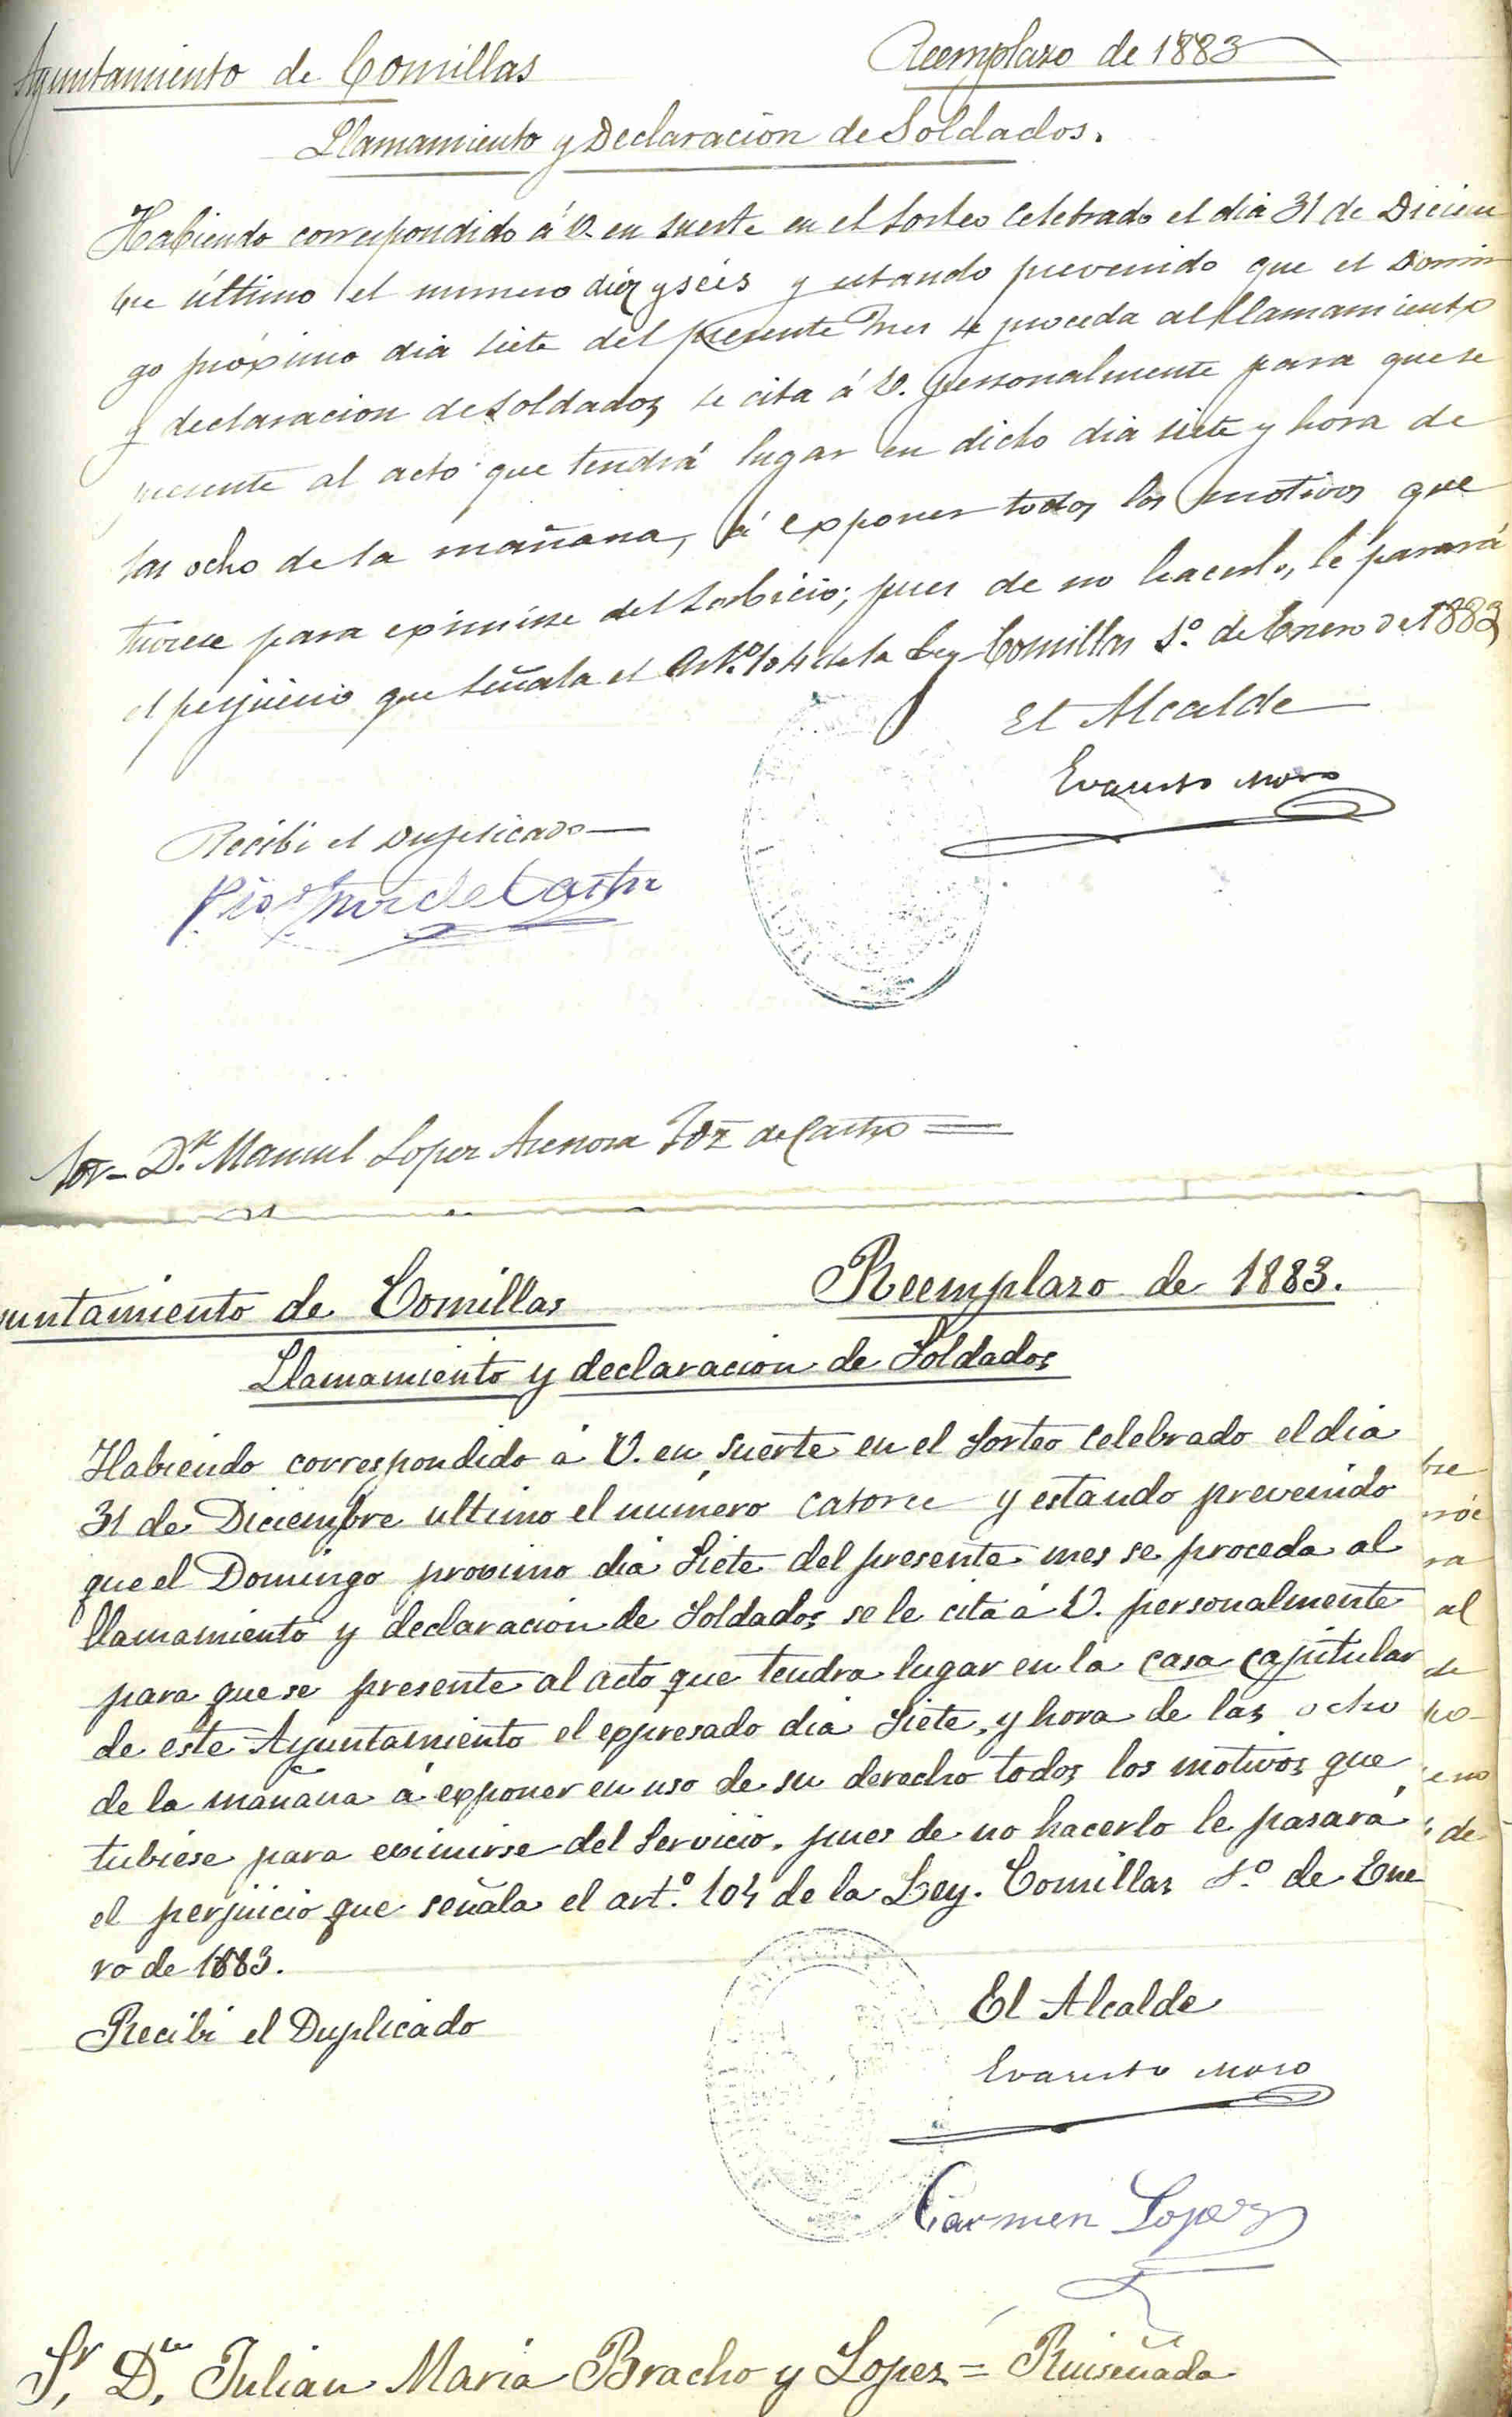 Ayuntamiento de Comillas
Reemplazo de 1883
Llamamiento y Declaración de Soldados.
Habiendo correspondido á V. en suerte en el sorteo celebrado el dia 31 de Diciem
bre último el numero diez y seis y estando prevenido que el Domin
go próximo dia siete del presente mes se proceda al llamamiento
y declaracion de soldados, se cita á V. personalmente para que se
presente al acto que tendrá lugar en dicho dia siete y hora de
las ocho de la mañana, á exponer todos los motivos que
tuviese para eximirse del serbicio; pues de no hacerlo, le parará
el perjuicio que señala el Art.º 104 de la Ley Comillas 1º. de Enero de 1883
El Alcalde
Evaristo Moro
Recibi el Duplicado
de Castro
Sor. Dn. Manuel Lopez de Castro
untamiento de Comillas
Reemplazo de 1883.
Llamamiento y declaracion de Soldados
Habiendo correspondido á V. en suerte en el Sorteo celebrado el dia
31 de Diciembre ultimo el numero catorce y estando prevenido
que el Domingo proximo dia Siete del presente mes se proceda al
llamamiento y declaracion de Soldados se le cita á V. personalmente
para que se presente al acto que tendra lugar en la casa capitular
de este Ayuntamiento el expresado dia Siete, y hora de las ocho
de la mañana á exponer en uso de su derecho todos los motivos que
tubiese para eximirse del Servicio. pues de no hacerlo le pasará
el perjuicio que señala el art.º 104 de la Ley. Comillas 1.º de Ene
ro de 1883.
Recibi el Duplicado
El Alcalde
Evaristo Moro
Carmen Lopez
Sr. Dn. Julian Maria Bracho y Lopez = Ruiseñada